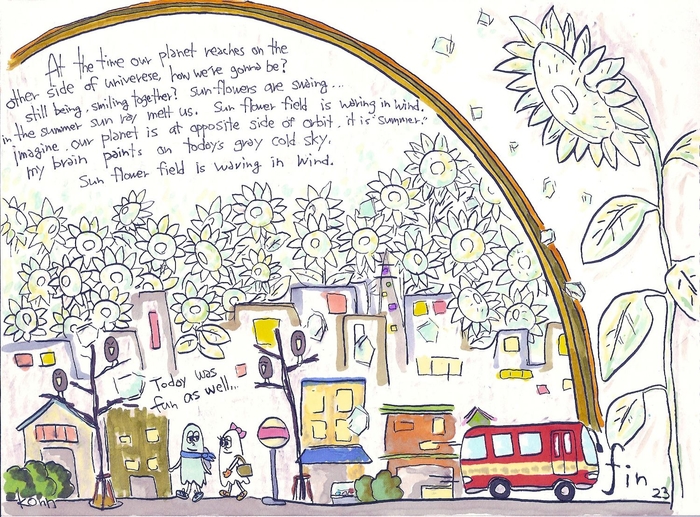 At the time our planet reaches on the
other side of univerese, how we're gonna be?
still being, smiling together? Sun-flowers are swing...
in the summer sun ray melt us. Sun flower field is waving in wind.
Imagine, our planet is at opposite side of orbit, it is "Summer."
my brain paints on today's gray cold sky.
Sun flower field is waving in wind.
Today was
fun as well...
fin
23